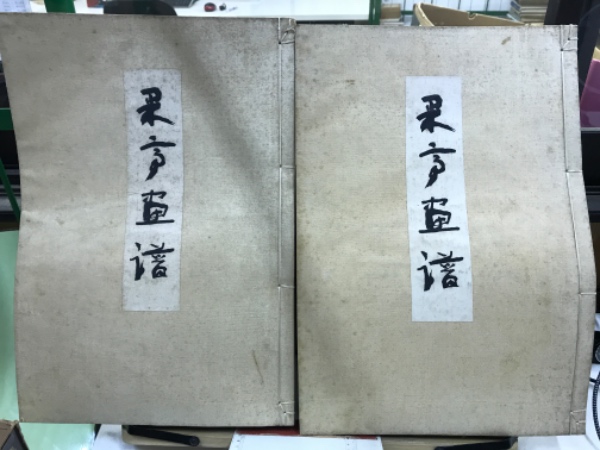 果亭畫譜
果亭畫譜